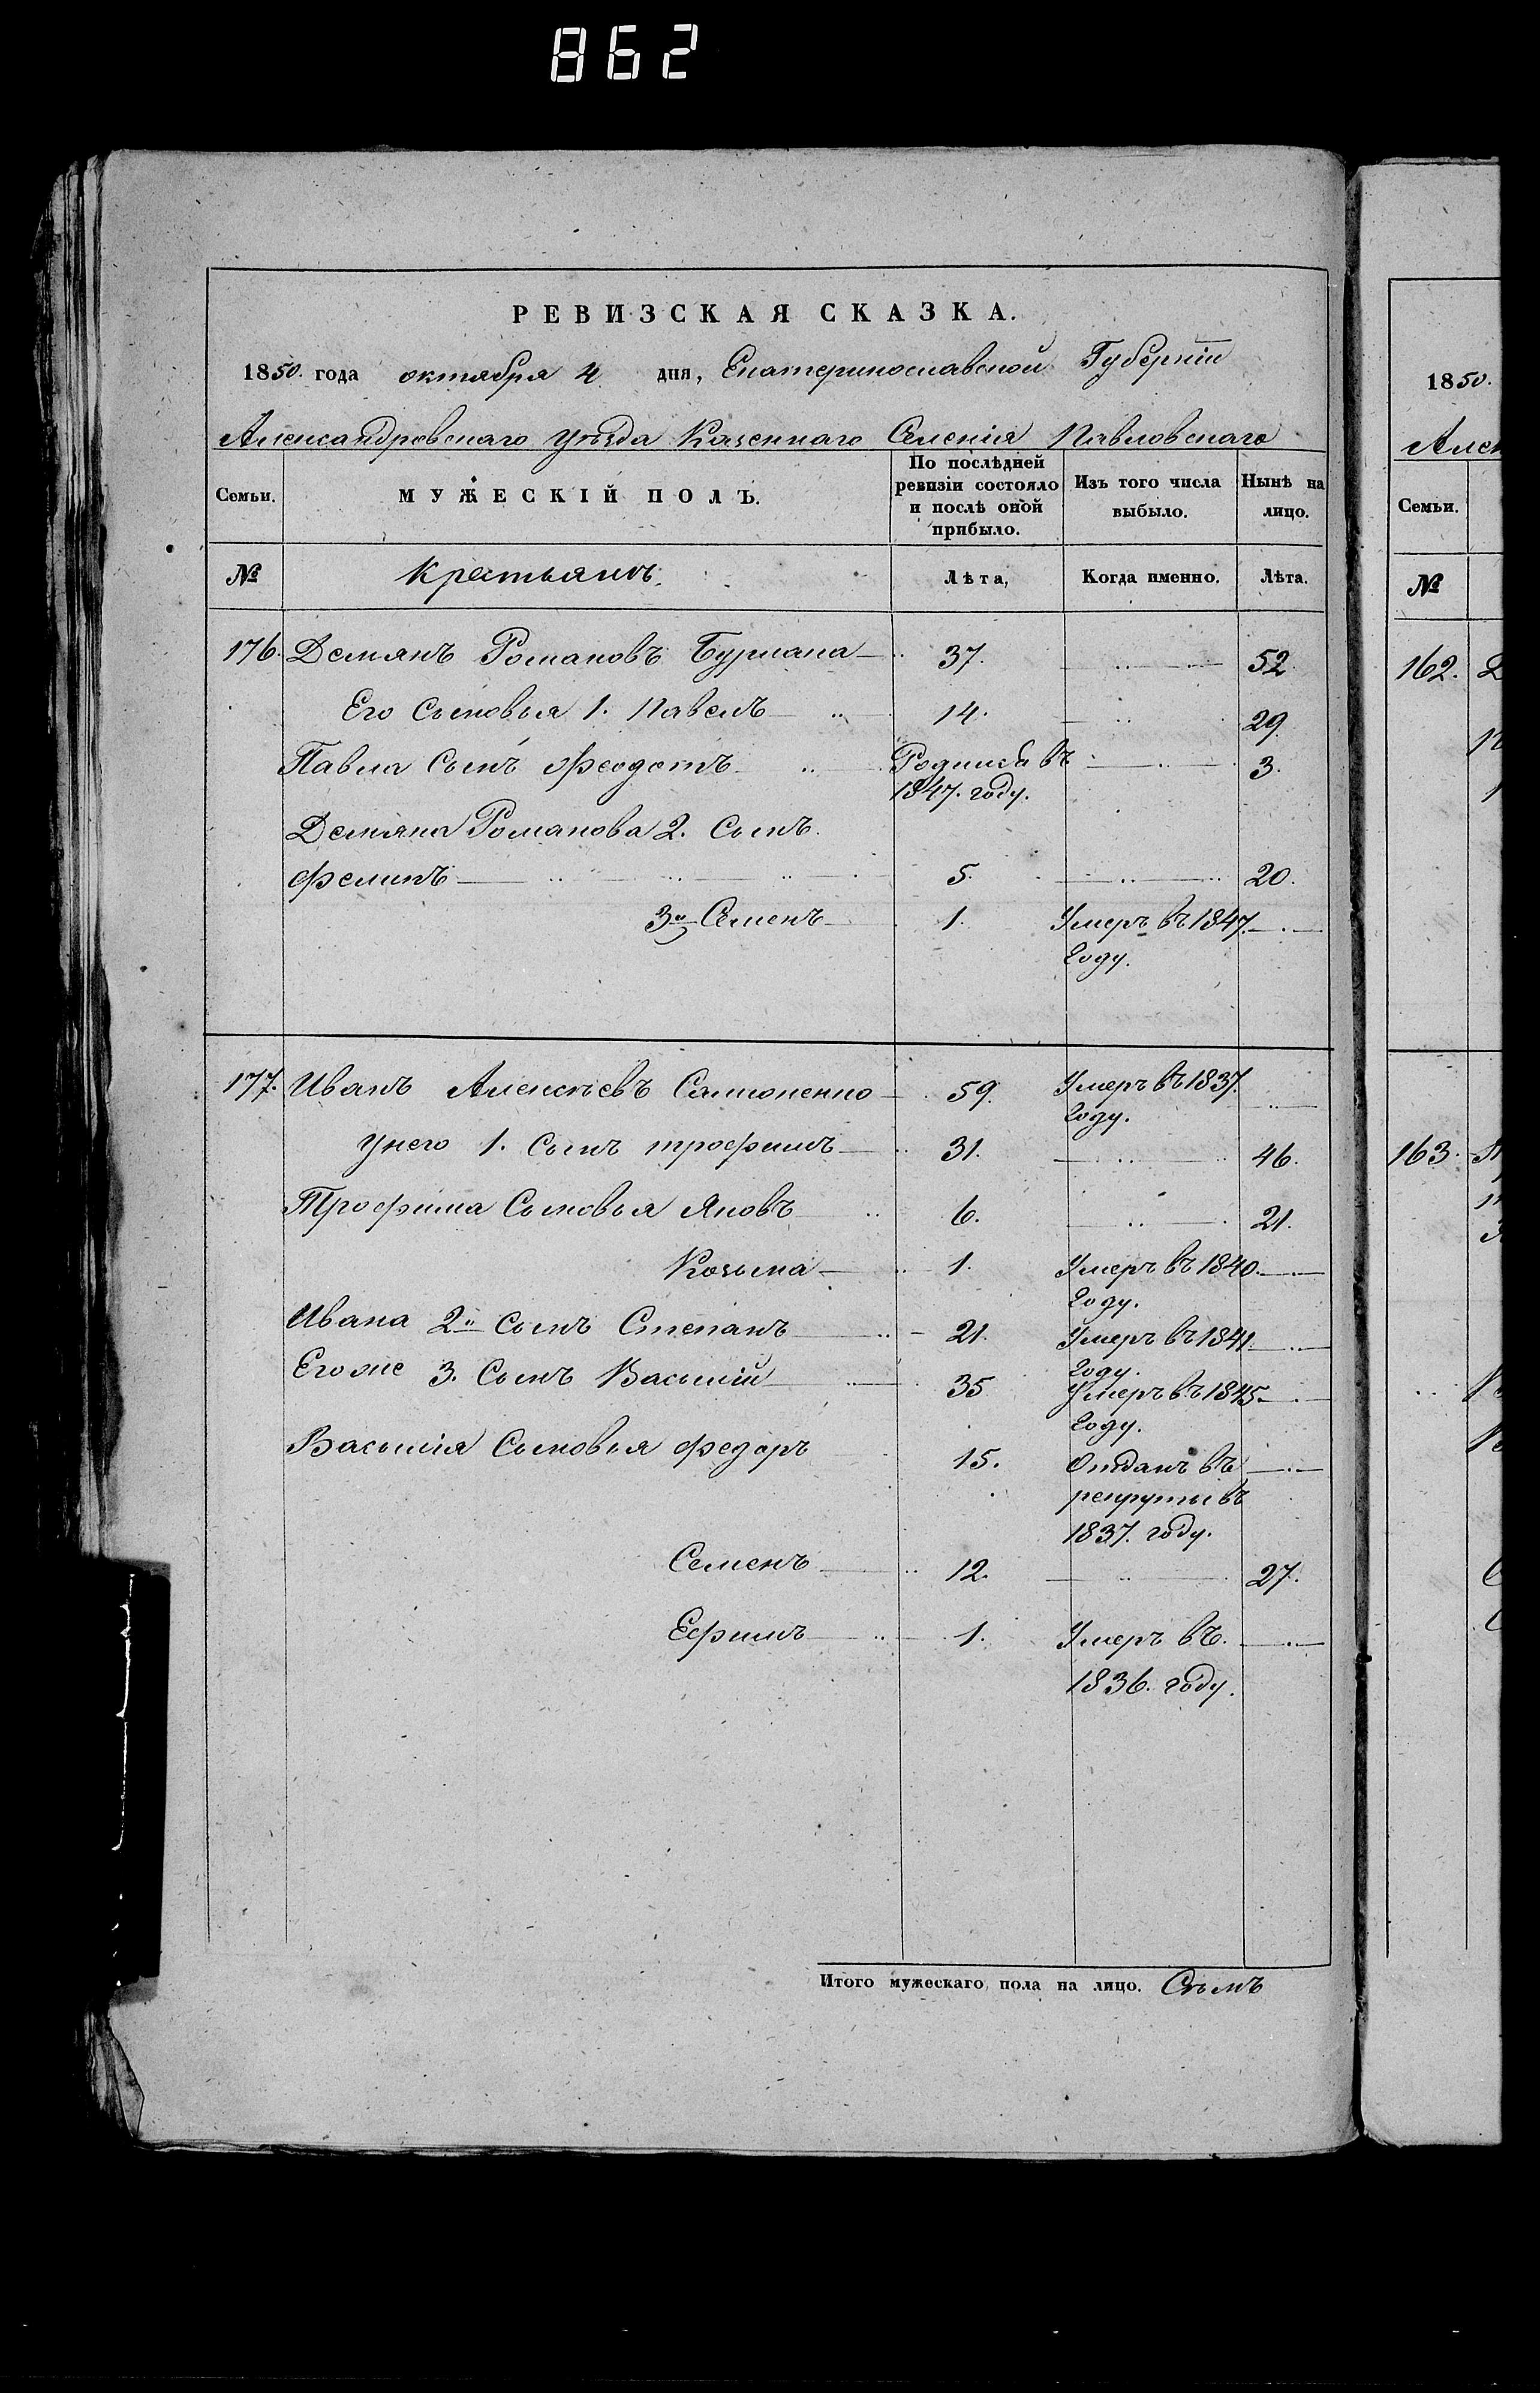 862
РЕВИЗСКАЯ СКАЗКА.
1850. года октября 4 дня, Екатеринославской Губерніи
Александровскаго уѣзда Казеннаго Селенія Павловскаго
Семьи. МУЖЕСКІЙ ПОЛЪ. По послѣдней ревизіи состояло и послѣ оной прибыло. Изъ того числа выбыло. Нынѣ на лицо.
№ Крестьянъ. Лѣта, Когда именно. Лѣта.
176. Демянъ Романовъ 37. 52.
Его Сыновья 1. Павелъ 14. 29.
Павла Сынъ Феодотъ Родился въ 3.
1847. году.
Демяна Романова 2. Сынъ.
Филипъ 5. 20.
3й Семенъ 1. Умеръ въ 1847.
Году.
177. Иванъ Алексѣевъ Самоненко 59. Умеръ въ 1837.
Году.
Унего 1. Сынъ трофимъ 31. 46.
Трофима Сыновья Яковъ 6. 21.
Козьма 1. Умеръ въ 1840.
Году.
Ивана 2й Сынъ Степанъ 21. Умеръ въ 1841.
Году.
Егоже 3. Сынъ Василій 35 Умеръ въ 1845.
Году.
Василія Сыновья Федоръ 15. Отданъ въ
рекруты въ
1837. году.
Семенъ 12. 27.
Ефимъ 1. Умеръ въ.
1836. году.
Итого мужескаго пола на лицо. Сѣмъ
1850.
Алек
Семьи.
№
162.
163.